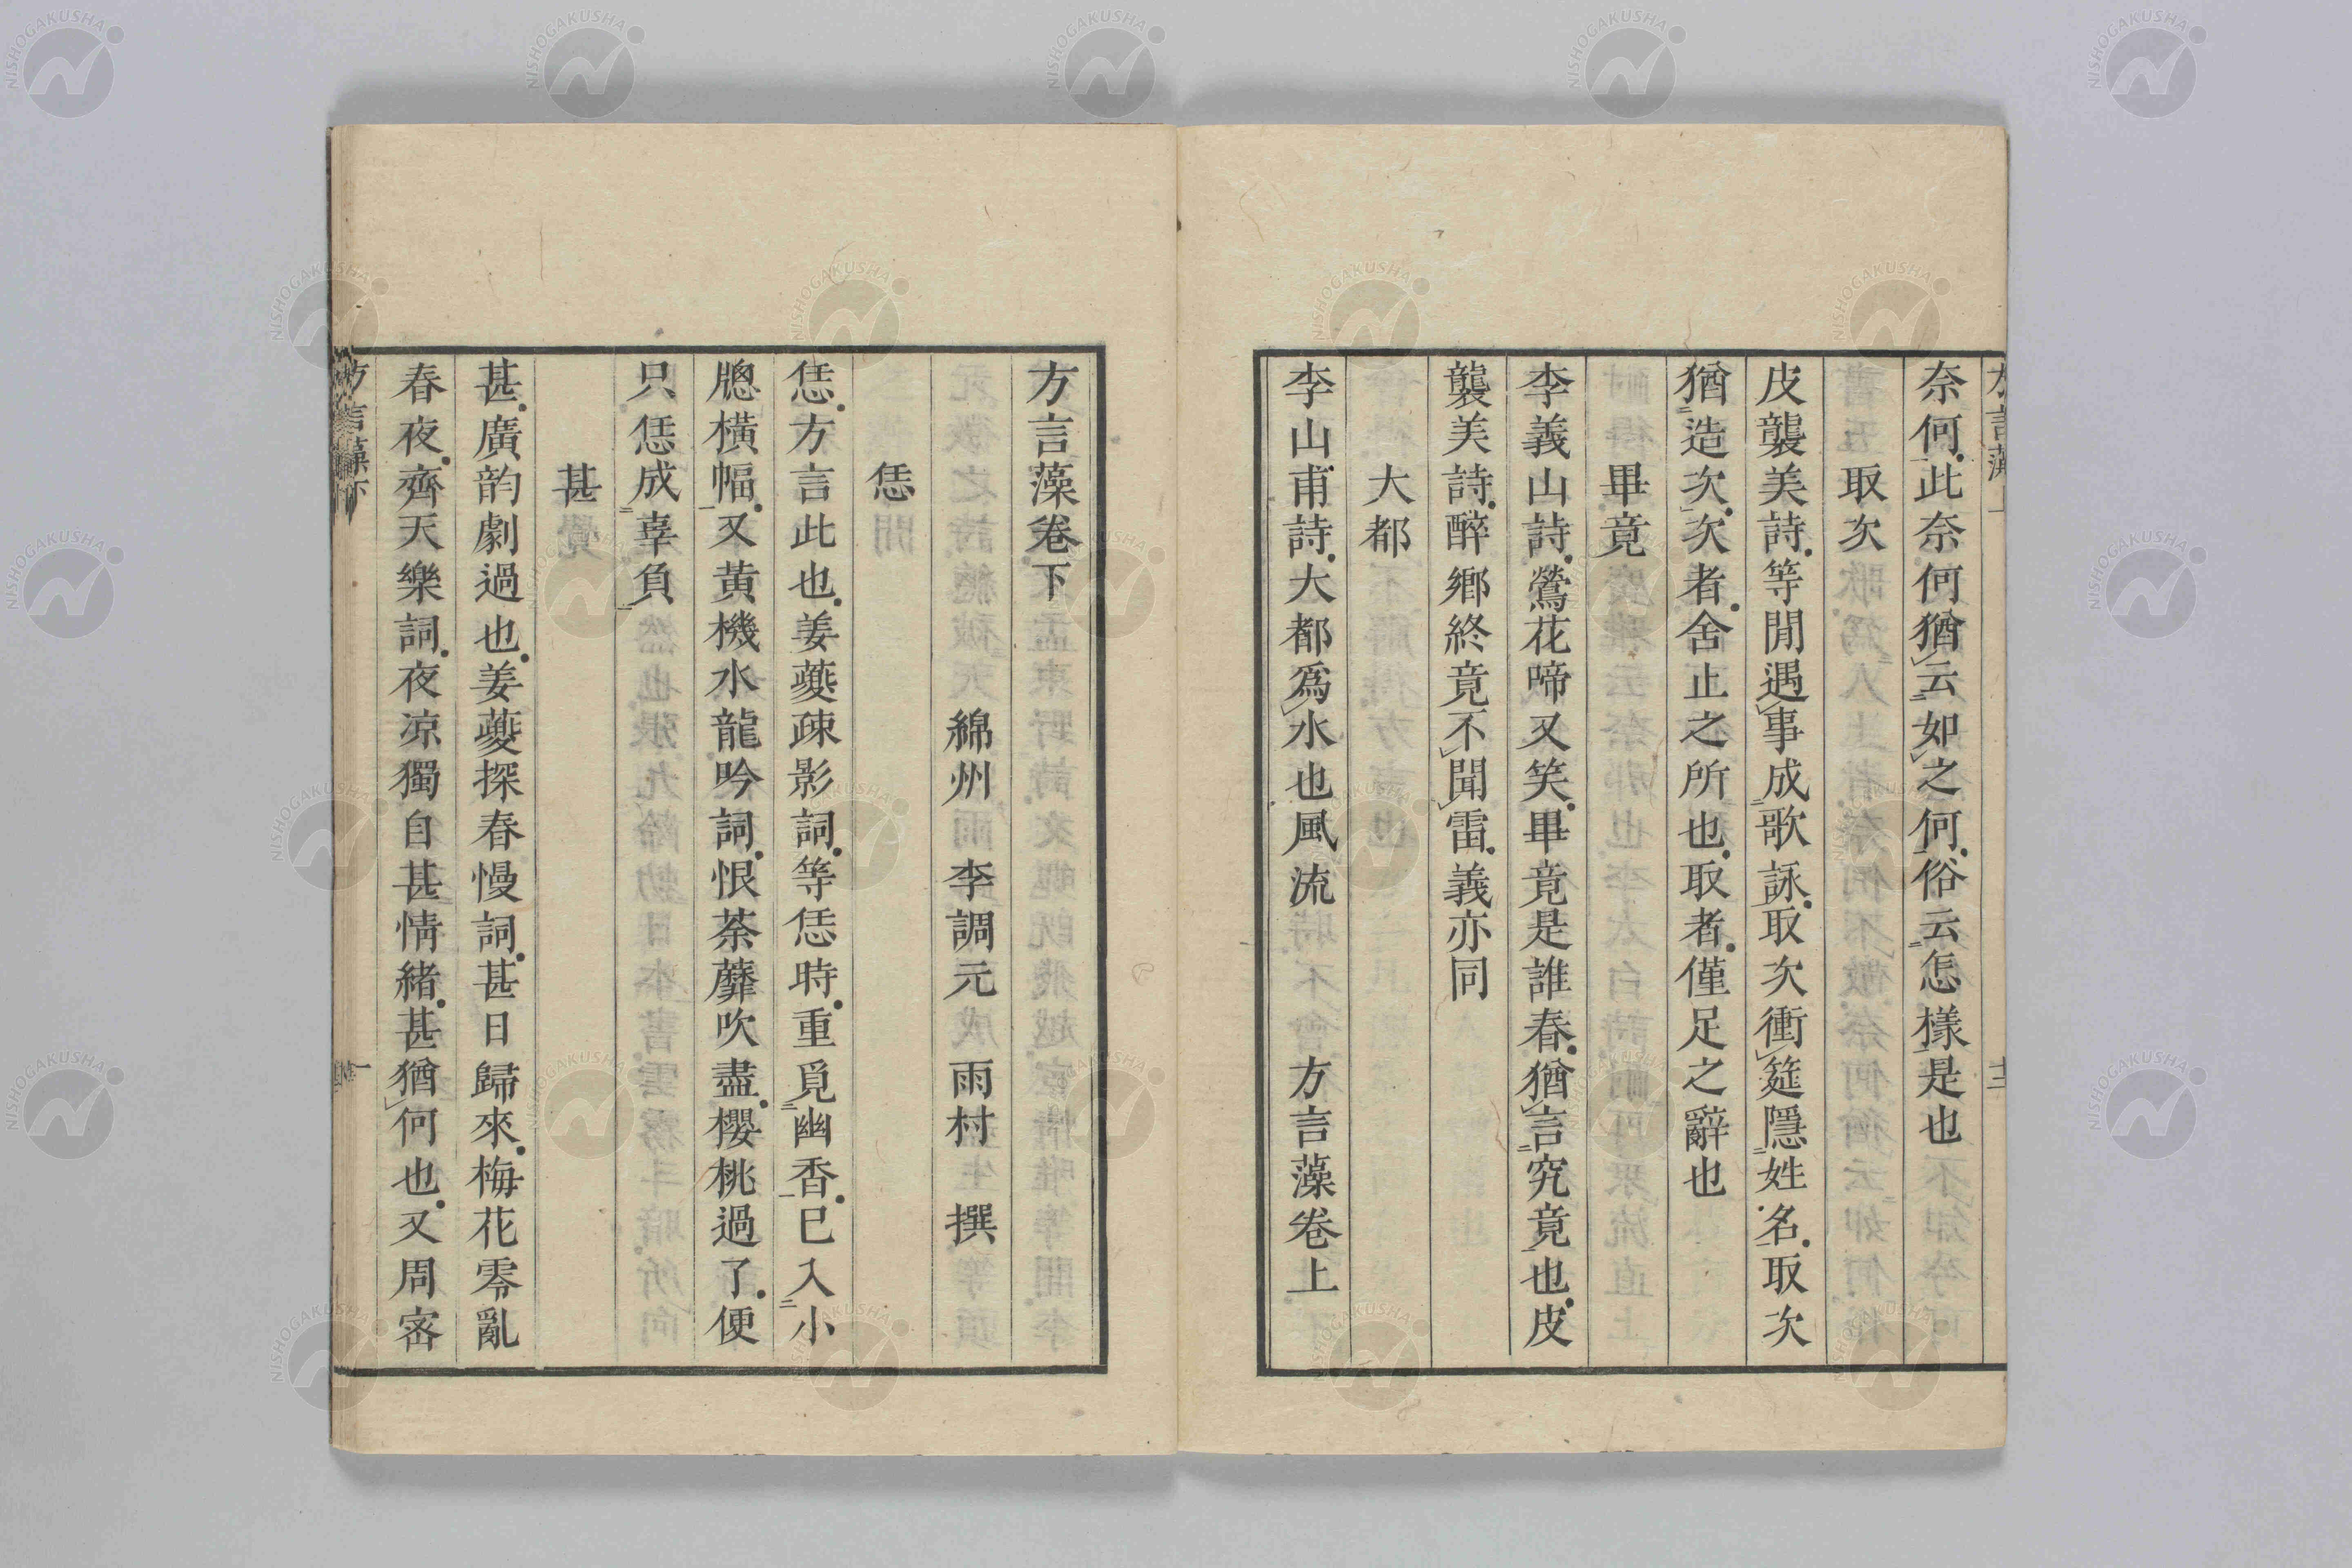 方言藻上
十三
奈何此奈何猶云如之何俗云怎樣是也
取次
皮襲美詩等閒遇事成歌詠取次衝筵隱姓名取次
猶造次次者舍止之所也取者僅足之辭也
畢竟
李義山詩鶯花啼又笑畢竟是誰春猶言究竟也皮
襲美詩醉鄉終竟不聞雷義亦同
大都
李山甫詩大都爲水也風流
方言藻卷上
方言藻卷下
綿州 李調元 雨村 撰
恁
恁方言此也姜夔疎影詞等恁時重覓幽香已入小
牕橫幅又黃機水龍吟詞恨荼蘼吹盡櫻桃過了便
只恁成辜負
甚
甚廣韵劇過也姜夔探春慢詞甚日歸來梅花零亂
春夜齊天樂詞夜凉獨自甚情緒甚猶何也又周密
方言藻下
一
NISHOGAKUSHA